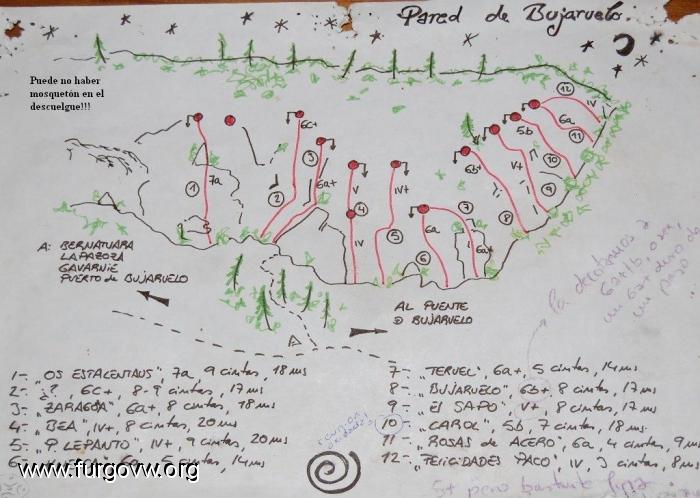 Pared de Bujaruelo.
Puede no haber
mosquetón en el
descuelgue!!!
12
IV
6a
11
5b
10
V+
9
8
6b+
7
6a+
6a
6
IV+
5
V
4
IV
3
6a+
6c+
2
1
7a
A: BERNATUARA
LAPAZOZA
GAVARNIE
PUERTO de BUJARUELO
AL PUENTE
D BUJARUELO
la decotamos a
6a+/b, o sea,
un 6a+ duro de
un paso
1- "OS ESTALENTAUS", 7a, 9 cintas, 18 ms
2- ¿?, 6c+, 8-9 cintas, 17 ms
3- "ZARAGOZA", 6a+, 8 cintas, 18 ms
4- "BEA", IV+, 8 cintas, 20 ms
5- "P LEPANTO", IV+, 9 cintas, 20 ms
6- cintas, 14 ms
7- "TERUEL", 6a+, 5 cintas, 14 ms
8- "BUJARUELO" 6b+, 8 cintas, 17 ms
9- "El SAPO", V+, 8 cintas, 17 ms
10- "CAROL", 5b, 7 cintas, 18 ms
11- "ROSAS de ACERO", 6a, 4 cintas, 9 ms
12- "FELICIDADES PACO", IV, 3 cintas, 8 ms
reunión
5+ pero bastante fina
www.furgovw.org